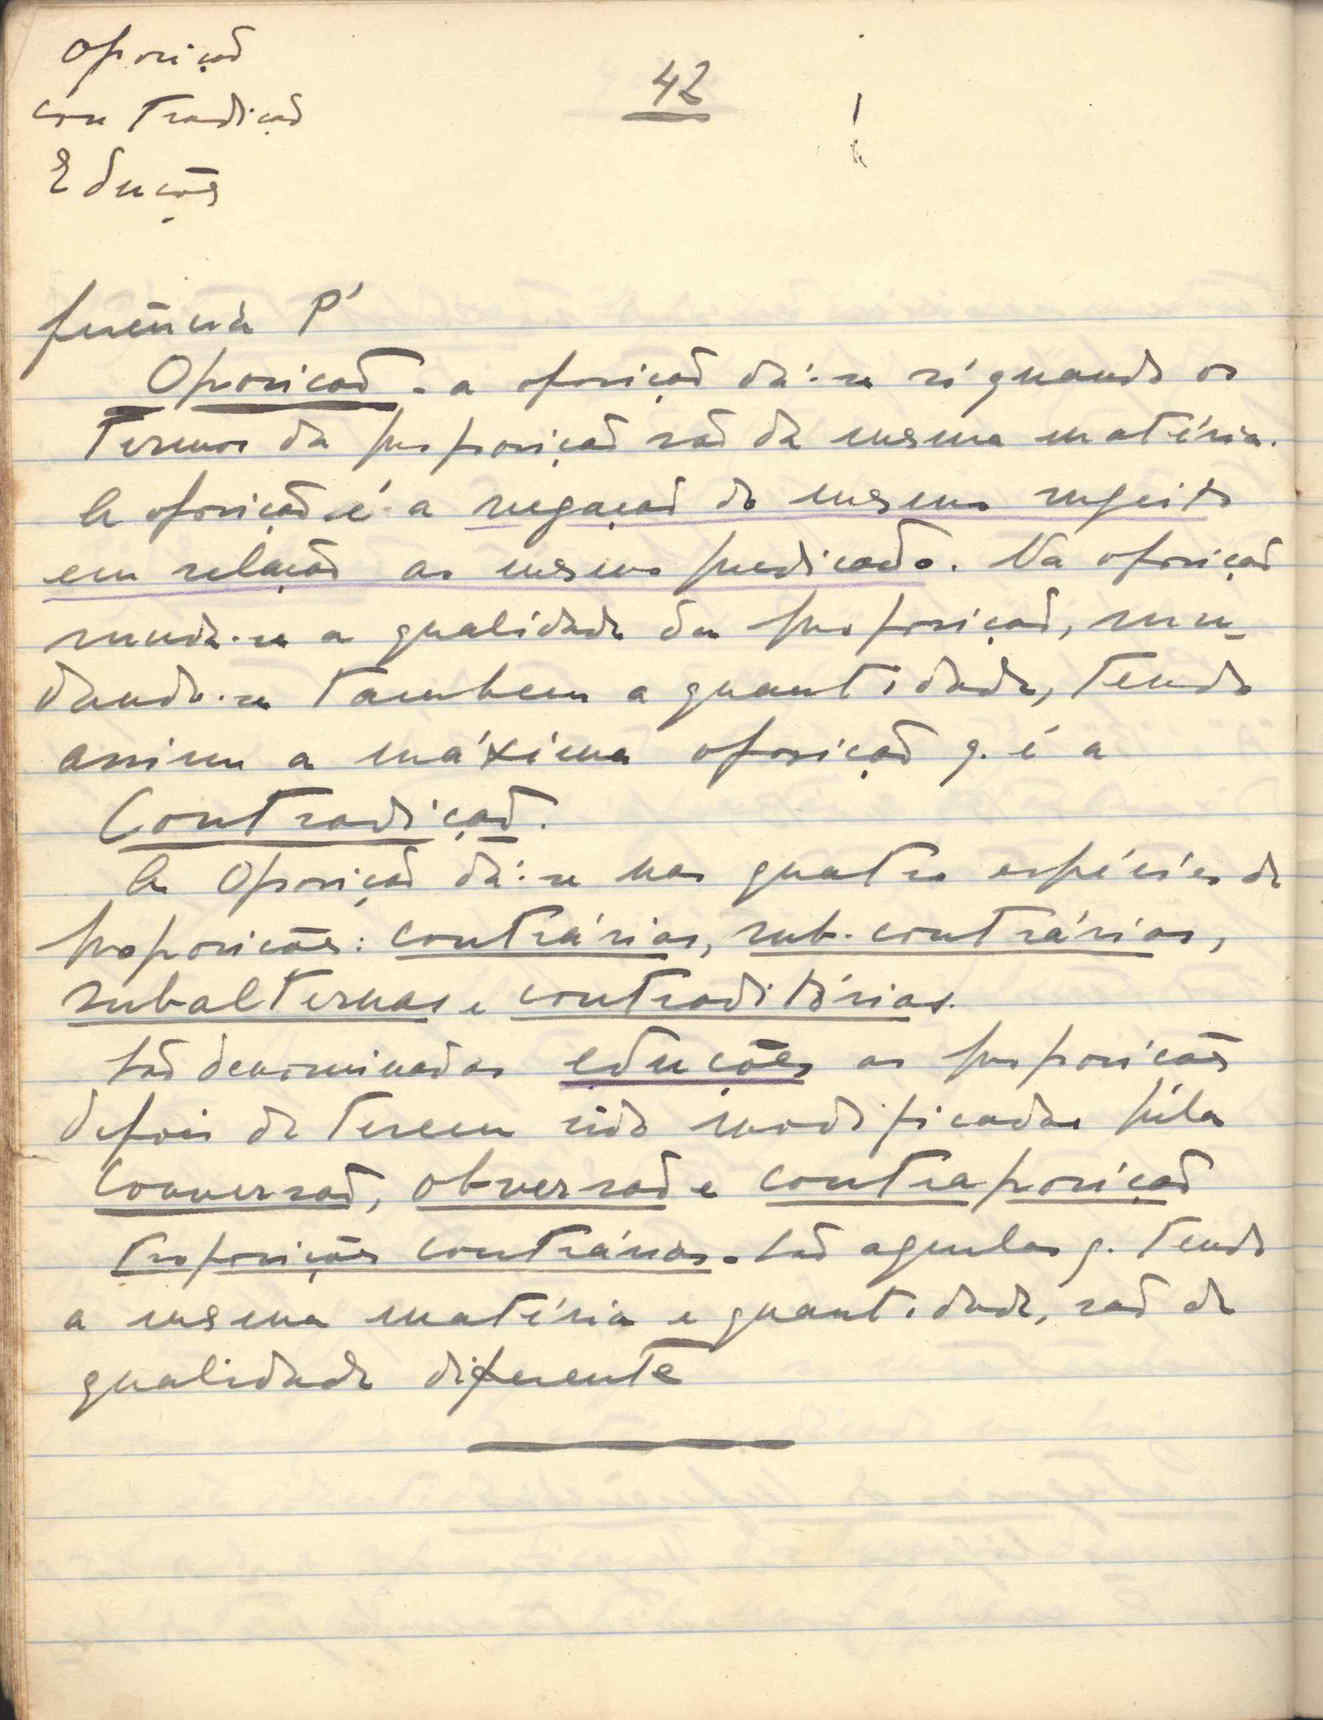 Oposição
contradição
Educões
42
ferência P'
Oposição - a oposição dá-se só quando os
termos da proposição são da mesma matéria.
A oposição é a negação do mesmo sujeito
em relação ao mesmo predicado. Na oposição
muda-se a qualidade da proposição, mu-
dando-se tambem a quantidade, tendo
assim a máxima oposição q. é a
Contradição.
A Oposição dá-se nas quatro espécies de
proposições: contrárias, sub-contrárias,
subalternas e contraditórias.
São denominadas educões as proposições
depois de terem sido modificadas pela
conversão, obversão e contraposição
Proposições contrárias - são aquelas q. tendo
a mesma matéria e quantidade, são de
qualidade diferente